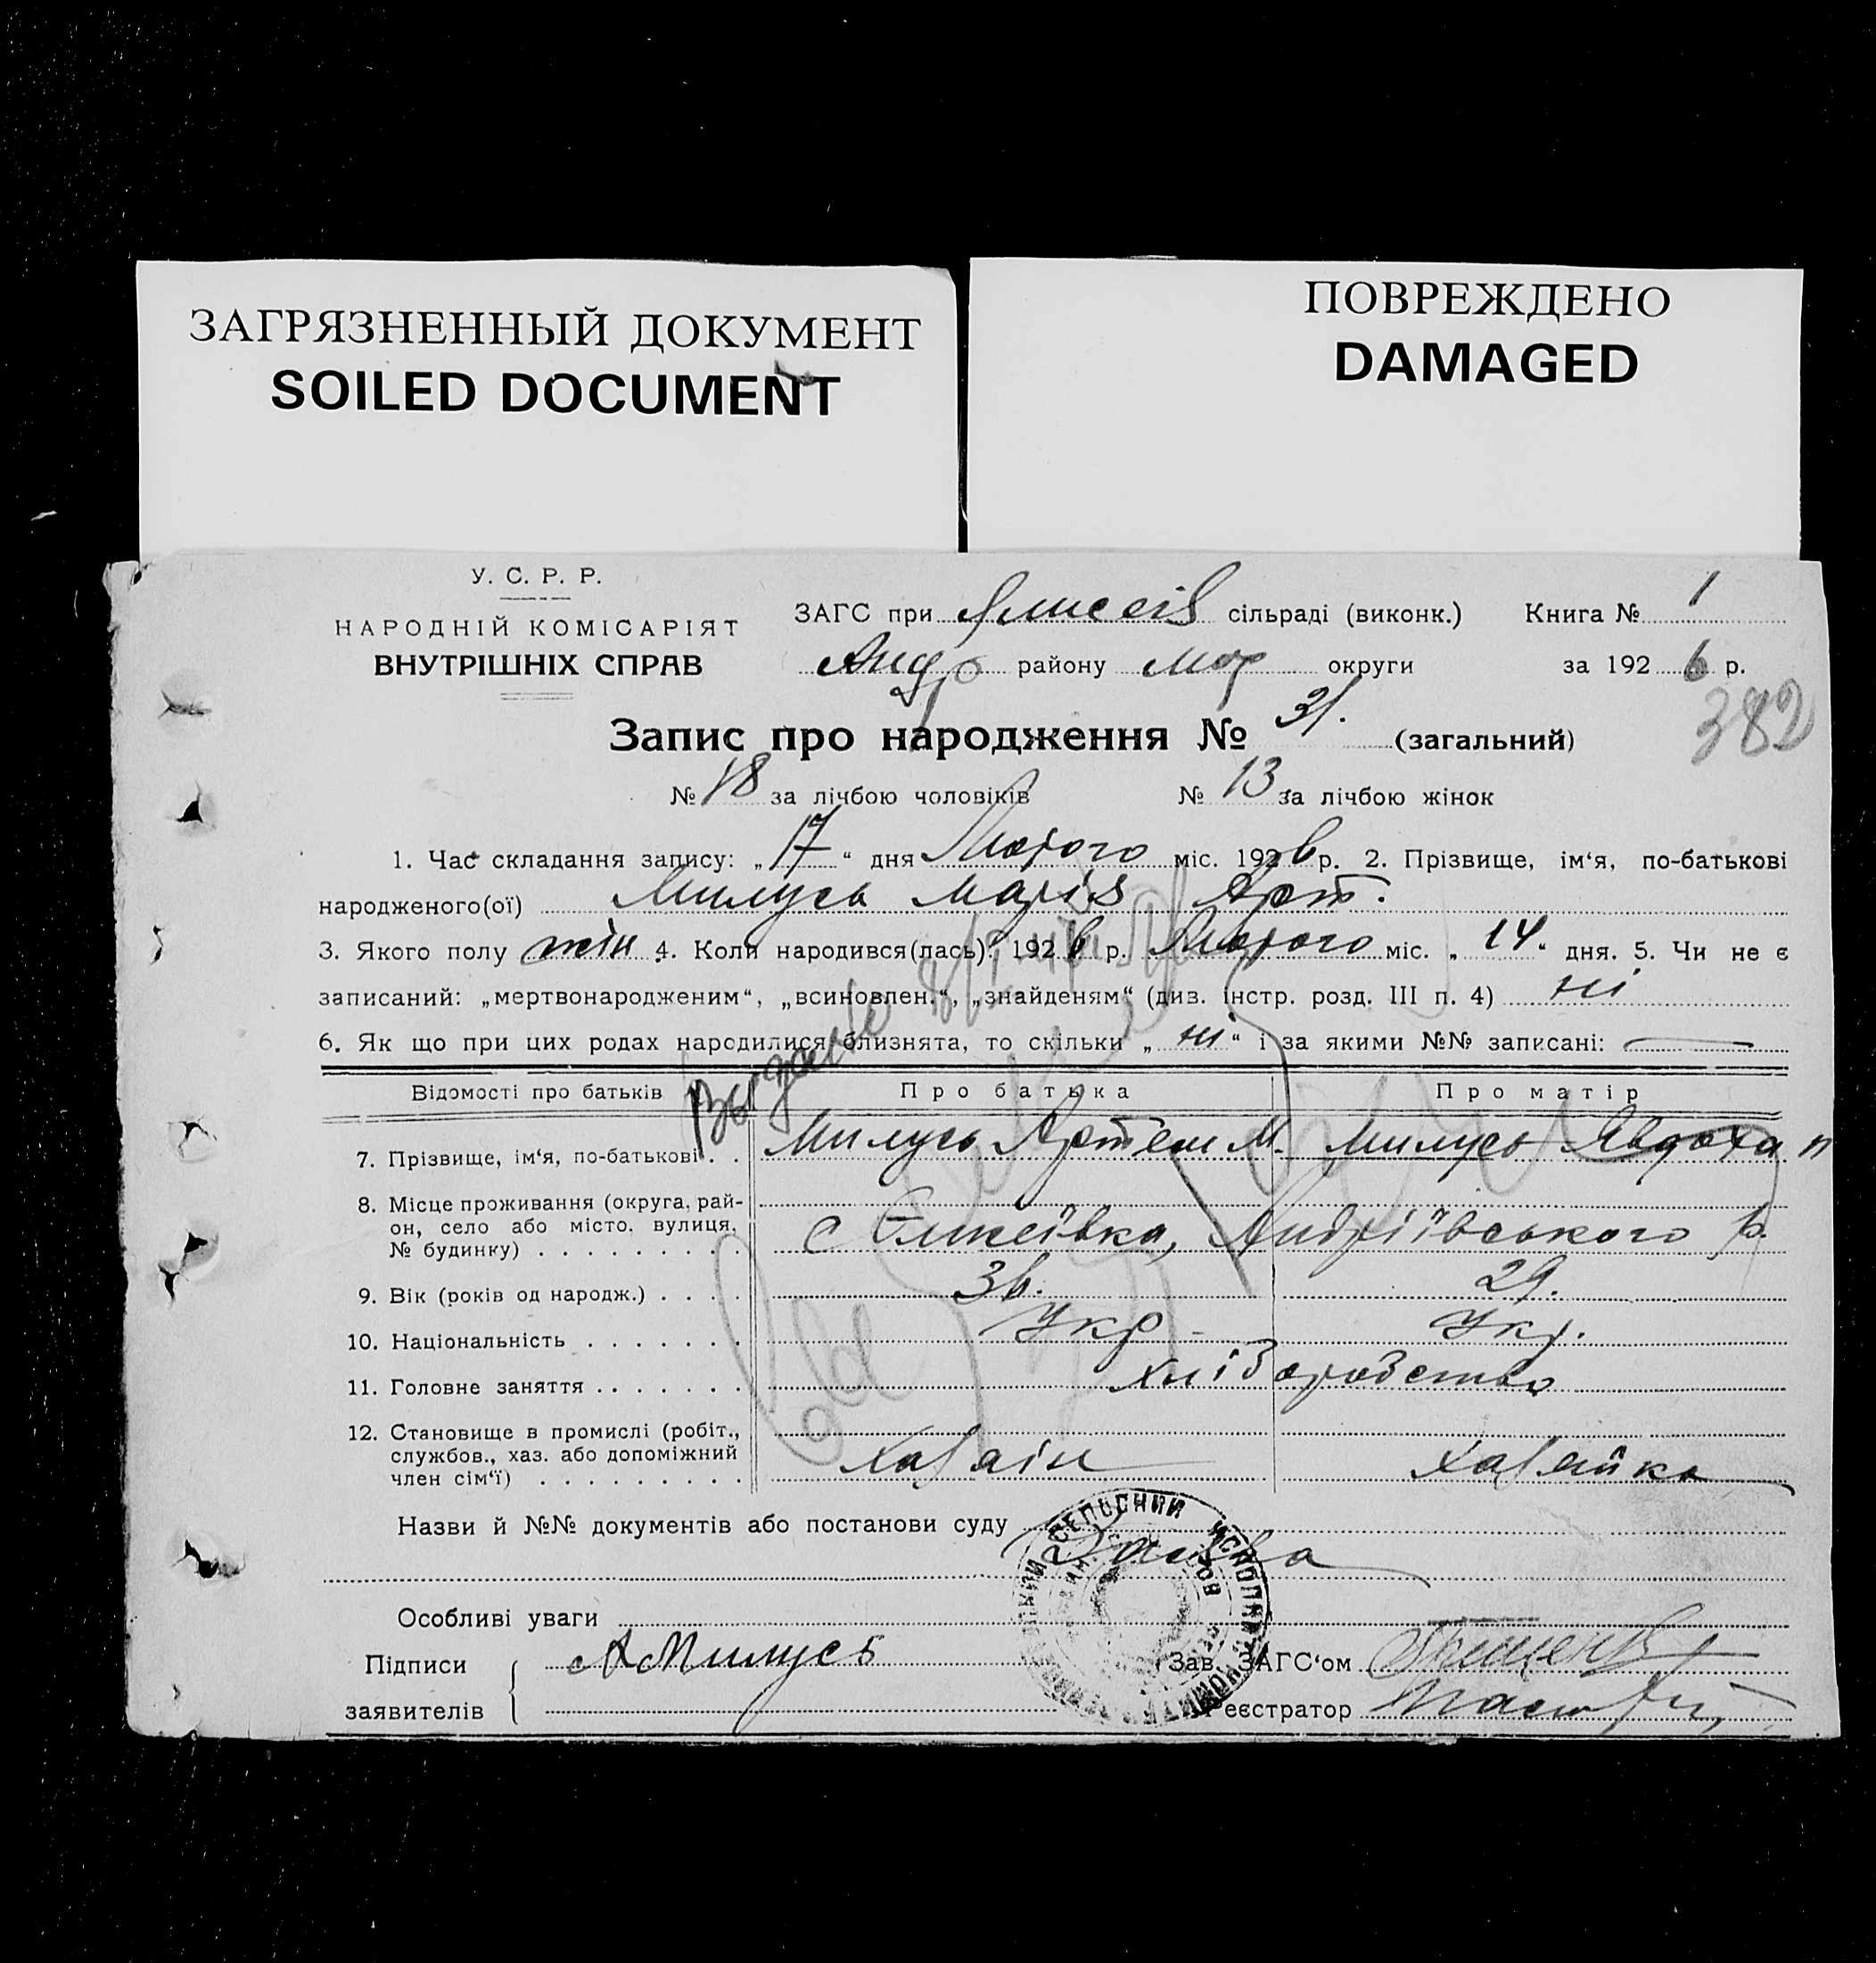 ЗАГРЯЗНЕННЫЙ ДОКУМЕНТ
SOILED DOCUMENT
ПОВРЕЖДЕНО
DAMAGED
У. С. Р. Р.
НАРОДНІЙ КОМІСАРІЯТ
ВНУТРІШНІХ СПРАВ
ЗАГС при сільраді (виконк.) Книга № 1
району округи за 1926 р.
382
Запис про народження № 31. (загальний)
№ 18 за лічбою чоловіків № 13 за лічбою жінок
1. Час складання запису: „17“ дня Лютого міс. 1926 р. 2. Прізвище, ім‘я, по-батькові
народженого(ої) Милусь Марія Арт.
3. Якого полу жін 4. Коли народився(лась): 1926 р. Лютого міс. „14“ дня. 5. Чи не є
записаний: „мертвонародженим“, „всиновлен.“, „знайденям“ (див. інстр. розд. III п. 4) ні
6. Як що при цих родах народилися близнята, то скільки „ні“ і за якими №№ записані: —
Відомості про батьків Про батька Про матір
7. Прізвище, ім‘я, по-батькові . . Милусь Артем М. Милусь Явдоха П
8. Місце проживання (округа, рай-
он, село або місто, вулиця,
№ будинку) . . . . . . . . . с Олисеївка, Андріївського р.
9. Вік (років од народж.) . . . . 36. 29.
10. Національність . . . . . . . Укр Укр.
11. Головне заняття . . . . . . . хліборобство
12. Становище в промислі (робіт.,
службов., хаз. або допоміжний
член сім‘ї) . . . . . . . . . Хазаін Хазяйка
Назви й №№ документів або постанови суду
Особливі уваги
Підписи А Милусь Зав. ЗАГС‘ом
заявителів Реєстратор